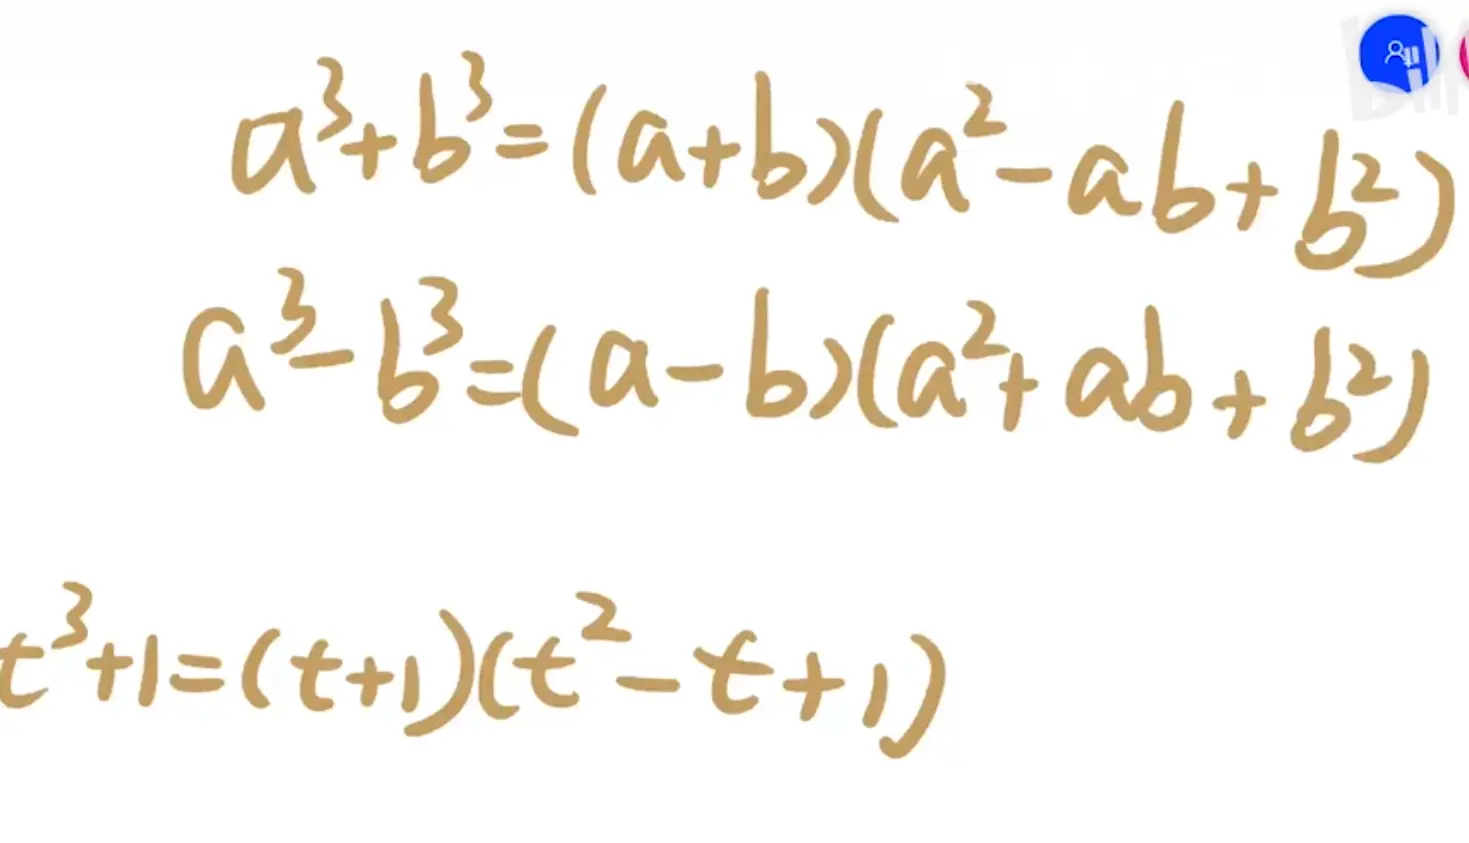 a³+b³=(a+b)(a²-ab+b²)
a³-b³=(a-b)(a²+ab+b²)
t³+1=(t+1)(t²-t+1)